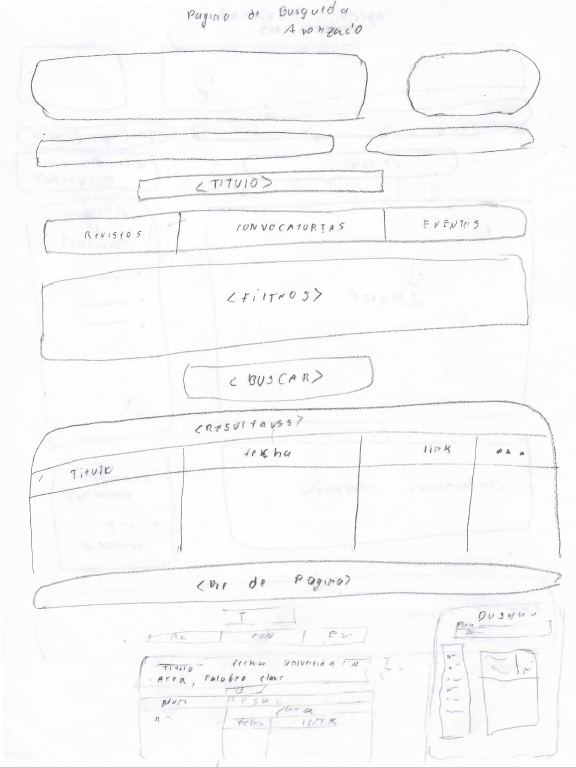 Pagina de Busqueda
Avanzado
<TITULO>
Revistas CONVOCATORIAS EVENTOS
<FILTROS>
<BUSCAR>
<RESULTADOS>
Titulo fecha link ...
<Pie de Pagina>
T
CON EV
Titulo fecha Universidad
Area, Palabra clave
fecha LINK